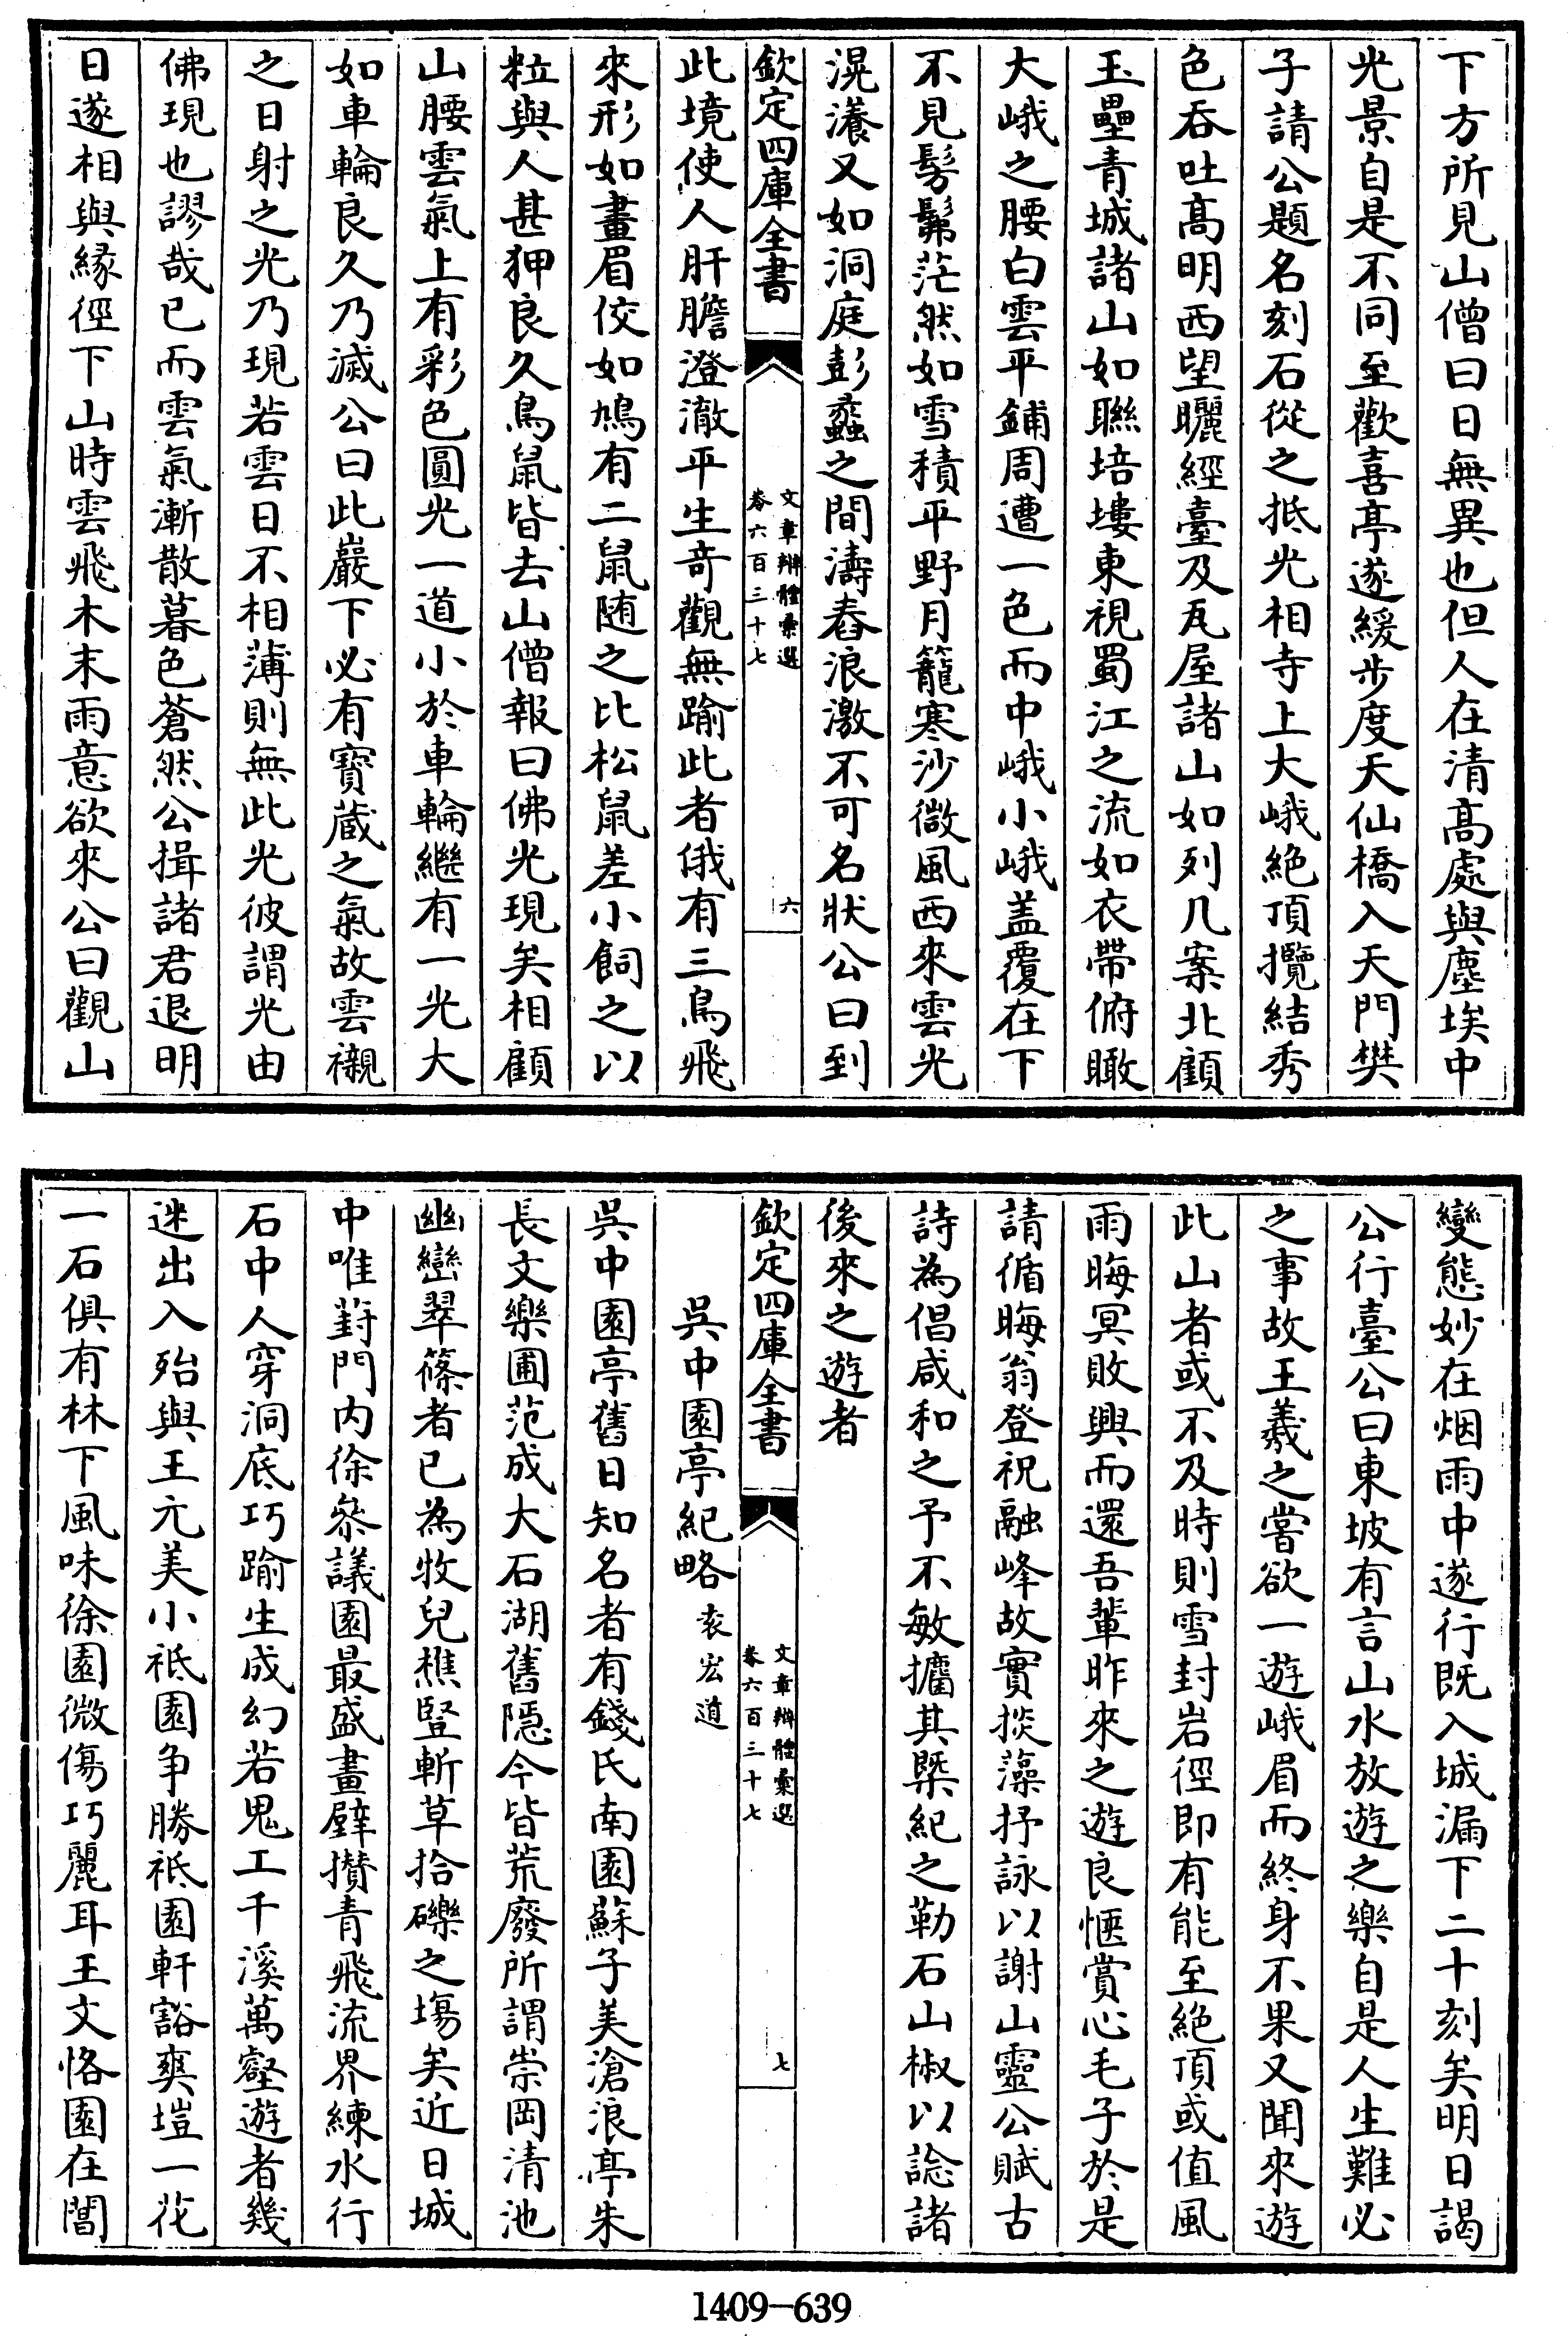 下方所見山僧曰日無異也但人在清髙處與塵埃中
光景自是不同至歡喜亭遂緩步度天仙橋入天門樊
子請公題名刻石從之抵光相寺上大峨絶頂攬結秀
色吞吐髙明西望曬經臺及瓦屋諸山如列几案北顧
玉壘青城諸山如聯培塿東視蜀江之流如衣帶俯瞰
大峨之腰白雲平鋪周遭一色而中峨小峨盖覆在下
不見髣髴茫然如雪積平野月籠寒沙微風西來雲光
滉瀁又如洞庭彭蠡之間濤舂浪激不可名狀公曰到
欽定四庫全書
文章辨體彚選
卷六百三十七
六
此境使人肝膽澄澈平生竒觀無踰此者俄有三鳥飛
來形如畫眉佼如鳩有二鼠随之比松鼠差小飼之以
粒與人甚狎良久鳥鼠皆去山僧報曰佛光現矣相顧
山腰雲氣上有彩色圓光一道小於車輪繼有一光大
如車輪良久乃滅公曰此巖下必有寳蔵之氣故雲襯
之日射之光乃現若雲日不相薄則無此光彼謂光由
佛現也謬哉已而雲氣漸散暮色蒼然公揖諸君退明
日遂相與縁徑下山時雲飛木末雨意欲來公曰觀山
變態妙在烟雨中遂行既入城漏下二十刻矣明日謁
公行臺公曰東坡有言山水放遊之樂自是人生難必
之事故王羲之嘗欲一遊峨眉而終身不果又聞來遊
此山者或不及時則雪封岩徑即有能至絶頂或值風
雨晦冥敗興而還吾輩昨來之遊良愜賞心毛子於是
請循晦翁登祝融峰故實掞藻抒詠以謝山靈公賦古
詩為倡咸和之予不敏攟其槩紀之勒石山椒以諗諸
後來之遊者
欽定四庫全書
文章辨體彚選
卷六百三十七
七
吳中園亭紀略 袁宏道
吳中園亭舊日知名者有錢氏南園蘇子美滄浪亭朱
長文樂圃范成大石湖舊隠今皆荒廢所謂崇岡清池
幽巒翠篠者已為牧兒樵豎斬草拾礫之塲矣近日城
中唯葑門内徐叅議園最盛畫壁攢青飛流界練水行
石中人穿洞底巧踰生成幻若鬼工千溪萬壑遊者幾
迷出入殆與王元美小祗園争勝祗園軒豁爽塏一花
一石俱有林下風味徐園微傷巧麗耳王文恪園在閶
1409-639